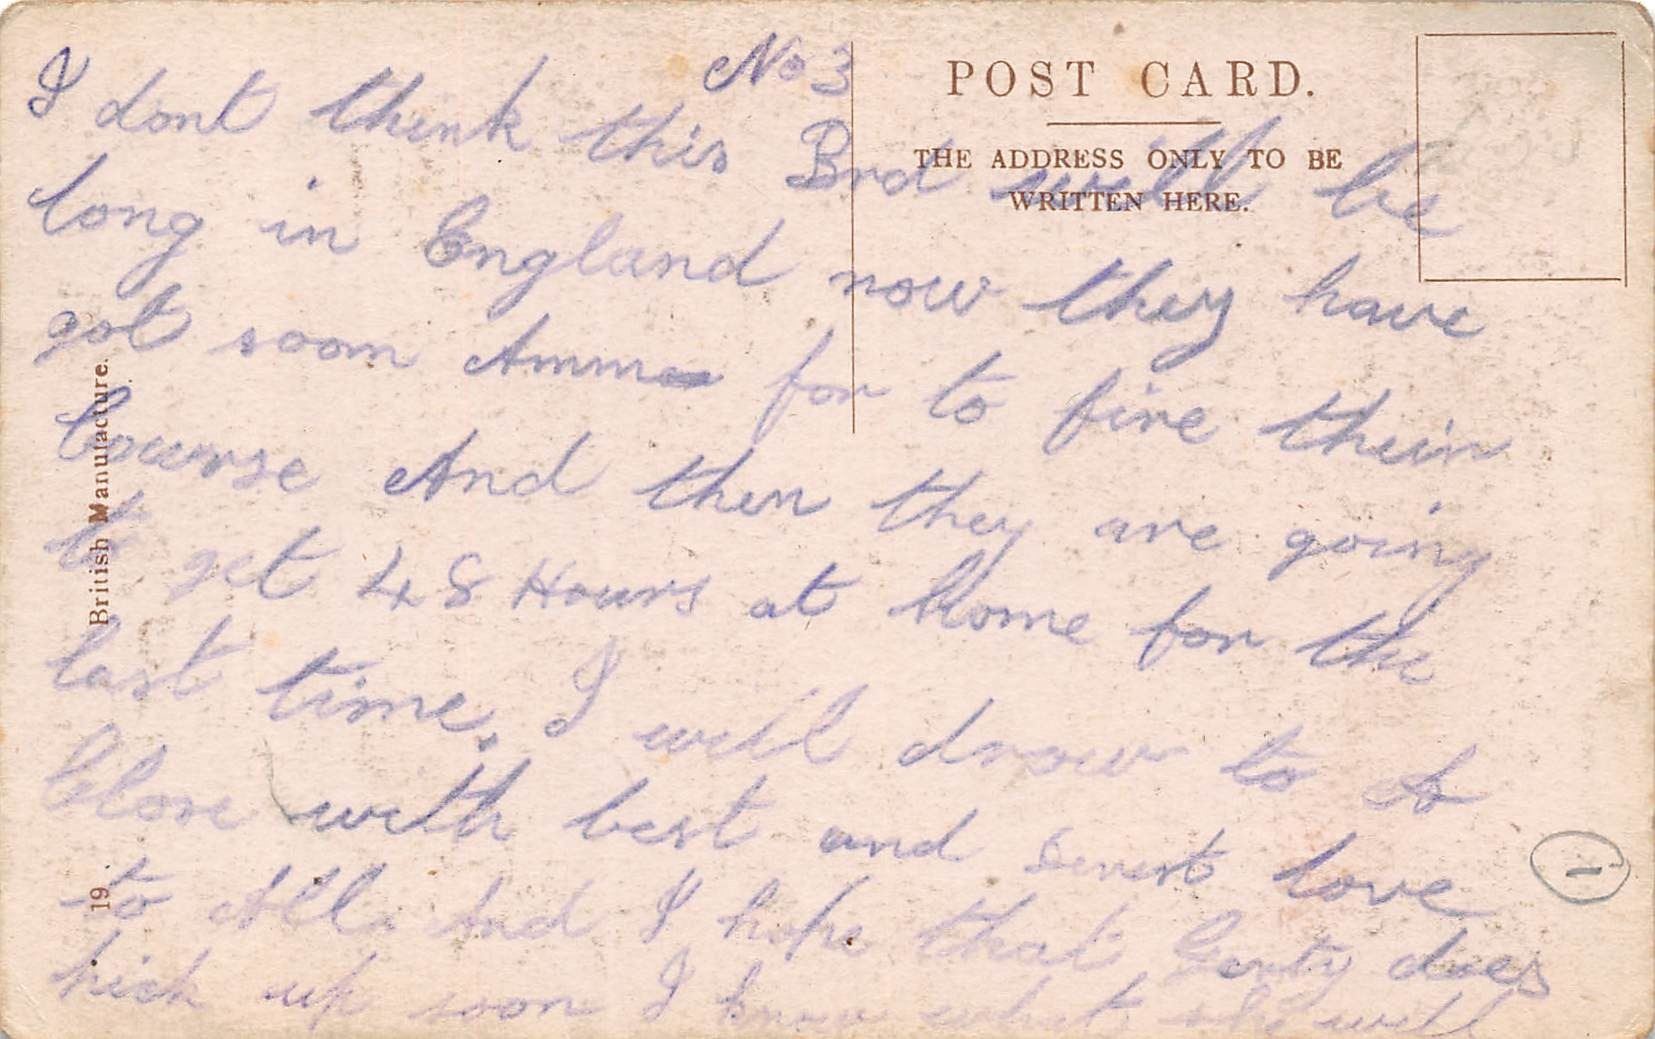 No 3
POST CARD.
THE ADDRESS ONLY TO BE
WRITTEN HERE.
I dont think this Brd will be
long in England now they have
got soom Ammo for to fire their
Course And then they are going
to get 48 Hours at home for the
last time. I will draw to A
Close with best and love
to All. And I hope that Gerty does
hick up soon I know what she will
British Manufacture.
19
1